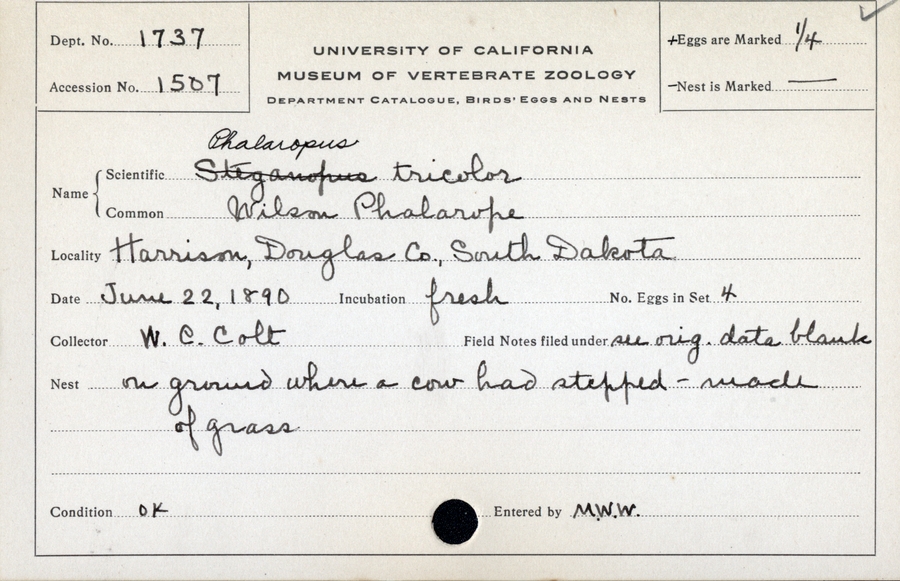 Dept. No. 1737
Accession No. 1507
UNIVERSITY OF CALIFORNIA
MUSEUM OF VERTEBRATE ZOOLOGY
DEPARTMENT CATALOGUE, BIRDS' EGGS AND NESTS
+Eggs are Marked 1/4
—Nest is Marked —
Phalaropus
Name { Scientific Steganopus tricolor
Common Wilson Phalarope
Locality Harrison, Douglas Co., South Dakota
Date June 22, 1890 Incubation fresh No. Eggs in Set 4
Collector W. C. Colt Field Notes filed under see orig. data blank
Nest on ground where a cow had stepped - made
of grass
Condition OK Entered by M.W.W.